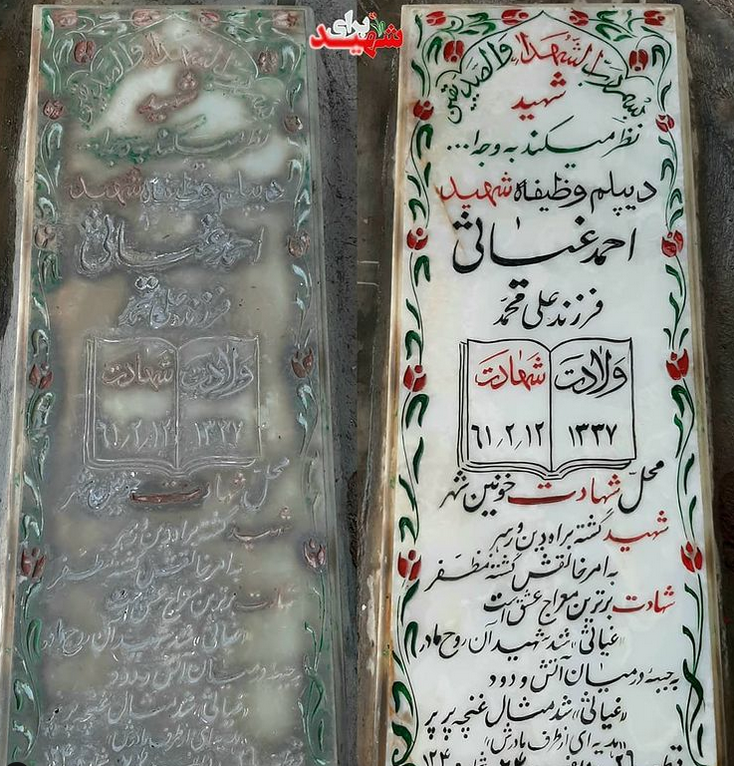 برای شهید
بسم رب الشهداء والصدیقین
شهید
نظر میکند به وجه ا...
دیپلم وظیفه شهید
احمد غیاثی
فرزند علی محمد
ولادت شهادت
۱۳۳۷ ۶۱٫۲٫۱۲
محل شهادت خونین شهر
شهید گشته براه دین و رهبر
به امر خالقش گشته مظفر
شهادت برترین معراج عشق است
«غیاثی» شد شهید آن روح مادر
به جبهه در میان آتش و دود
«غیاثی» شد مثال غنچه پر پر
«هدیه ای از طرف مادرش»
بسم رب الشهداء والصدیقین
شهید
نظر میکند به وجه ا...
دیپلم وظیفه شهید
احمد غیاثی
فرزند علی محمد
ولادت شهادت
۱۳۳۷ ۶۱٫۲٫۱۲
محل شهادت خونین شهر
شهید گشته براه دین و رهبر
به امر خالقش گشته مظفر
شهادت برترین معراج عشق است
«غیاثی» شد شهید آن روح مادر
به جبهه در میان آتش و دود
«غیاثی» شد مثال غنچه پر پر
«هدیه ای از طرف مادرش»